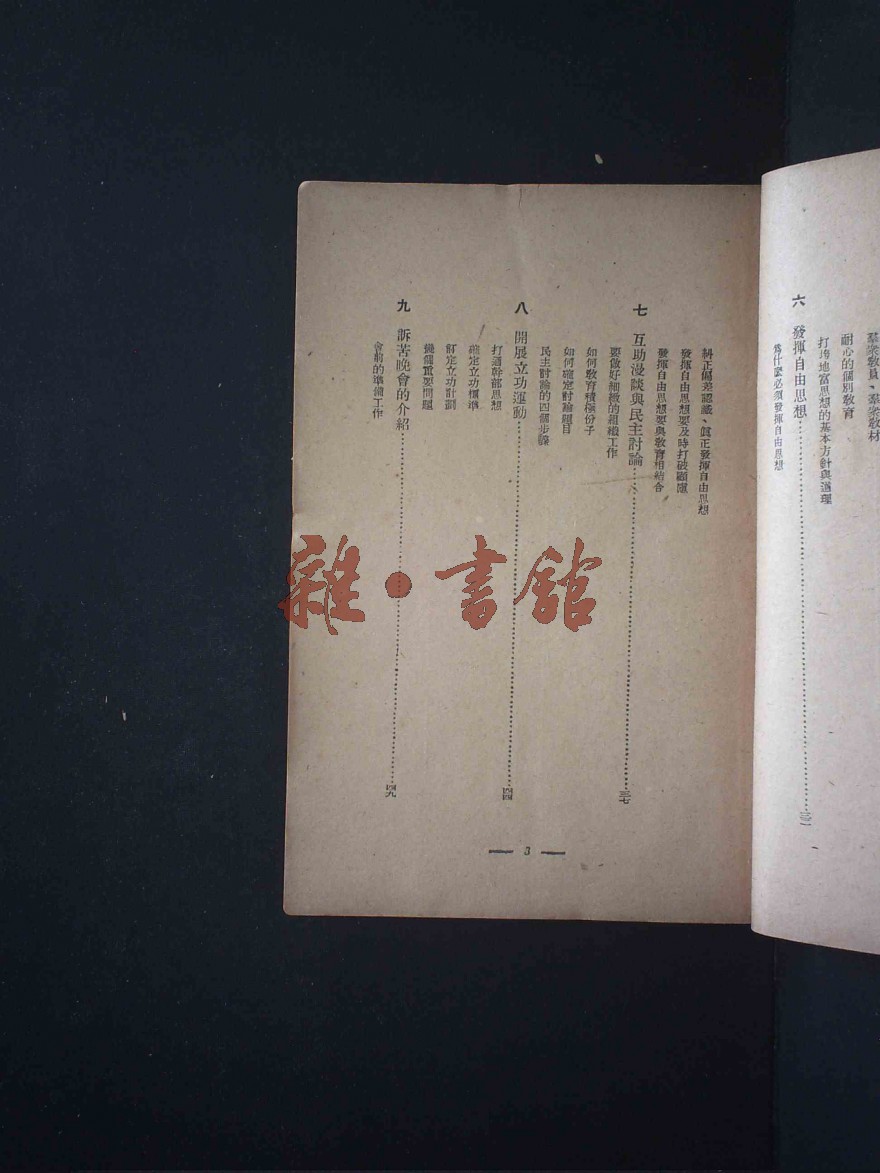 羣衆敎員、羣衆敎材
耐心的個別敎育
打垮地富思想的基本方針與道理
六 發揮自由思想……三二
爲什麼必須發揮自由思想
糾正偏差認識、眞正發揮自由思想
發揮自由思想要及時打破顧慮
發揮自由思想要與敎育相結合
七 互助漫談與民主討論……三七
要做好細緻的組織工作
如何敎育積極份子
如何確定討論題目
民主討論的四個步驟
八 開展立功運動……四四
打通幹部思想
確定立功標準
訂定立功計劃
幾個重要問題
九 訴苦晚會的介紹……四九
會前的準備工作
3
雜·書館